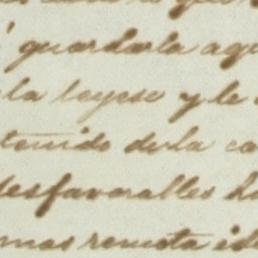 guardarla aqu
la leyese y le
tenido de la ca
desfavorables ha
mas remota ide